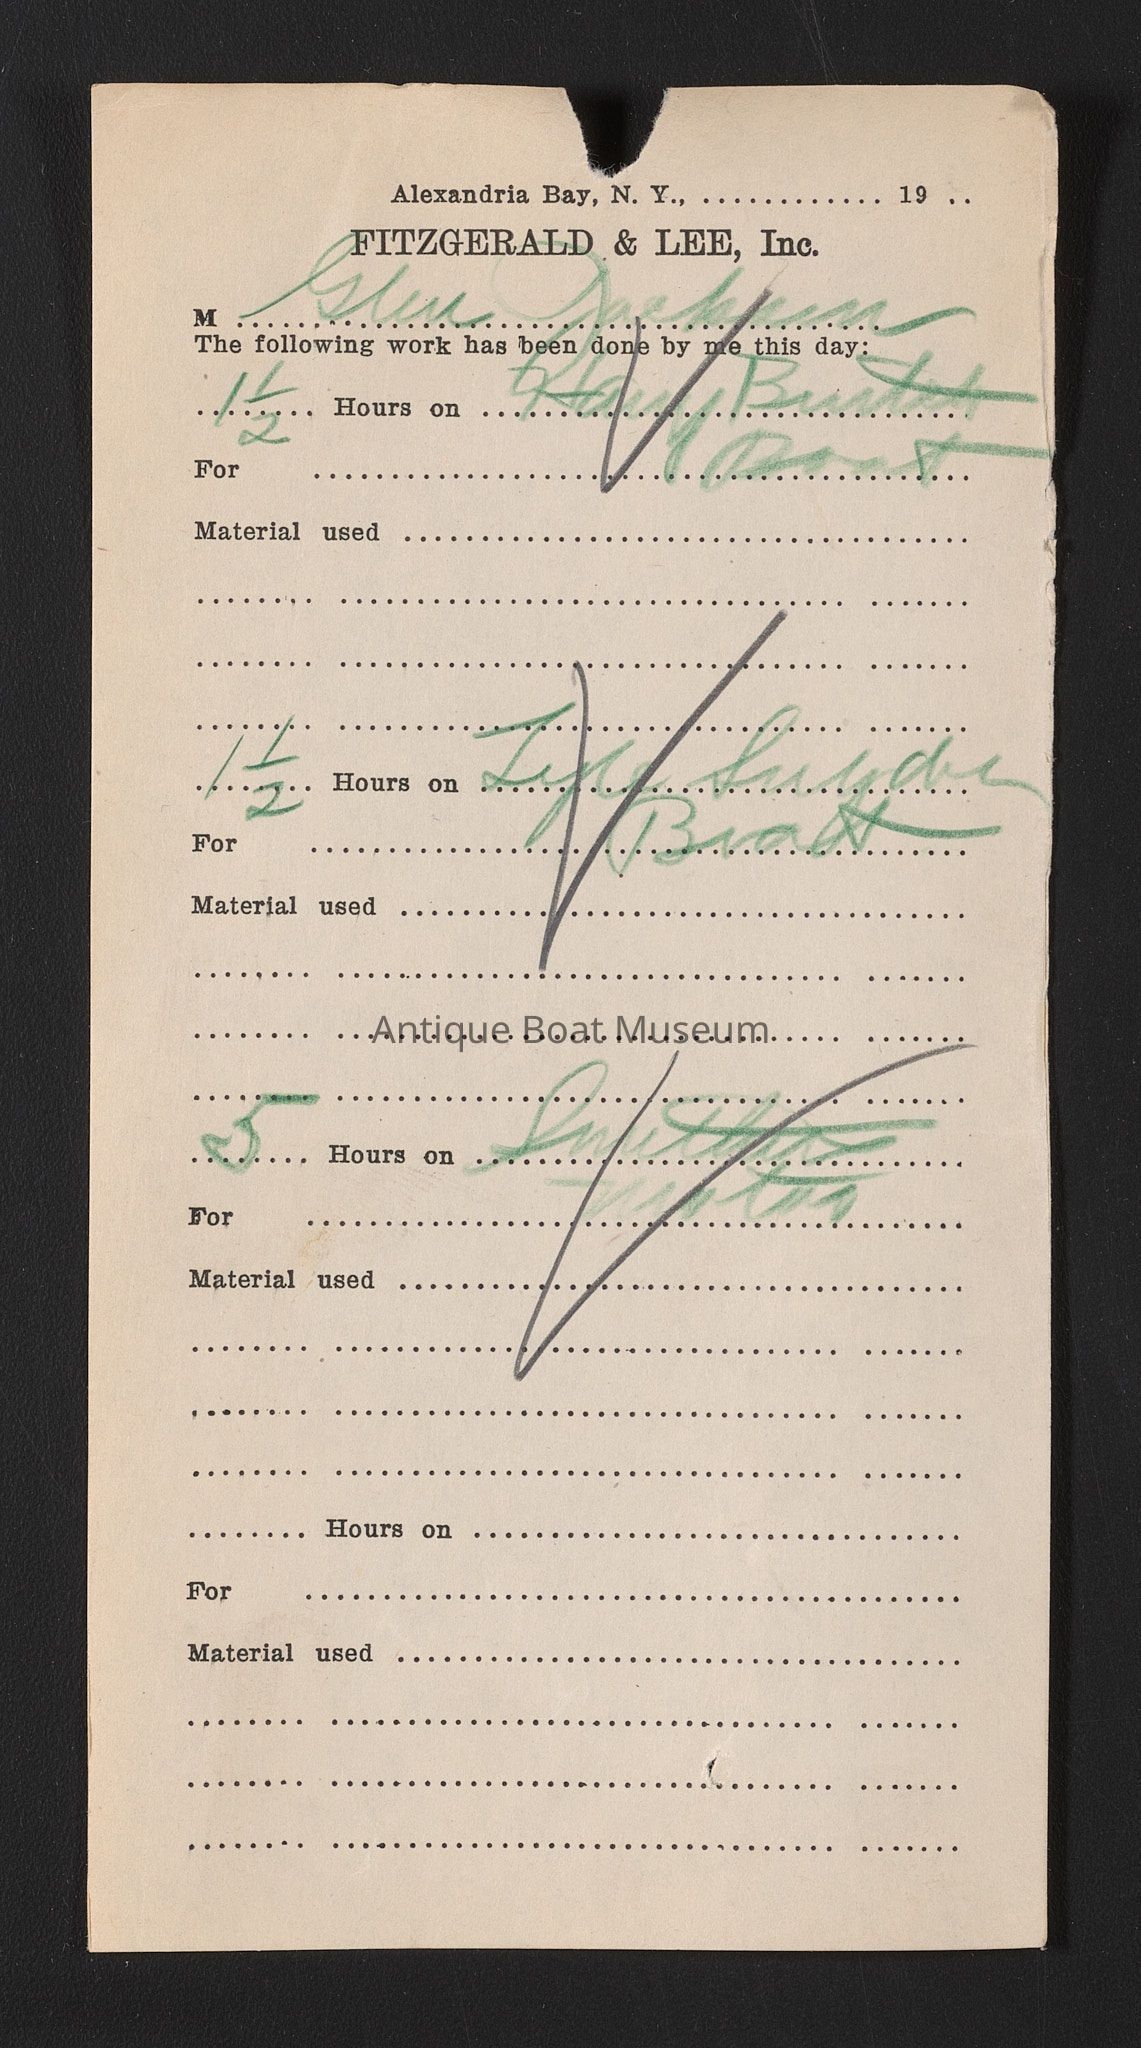 Alexandria Bay, N. Y., ............. 19 ..
FITZGERALD & LEE, Inc.
M Glen Jackson
The following work has been done by me this day:
1 1/2 Hours on Harry
For Boat
Material used
1 1/2 Hours on Lyle Snyder
For Boat
Material used
Antique Boat Museum
5 Hours on
For
Material used
Hours on
For
Material used